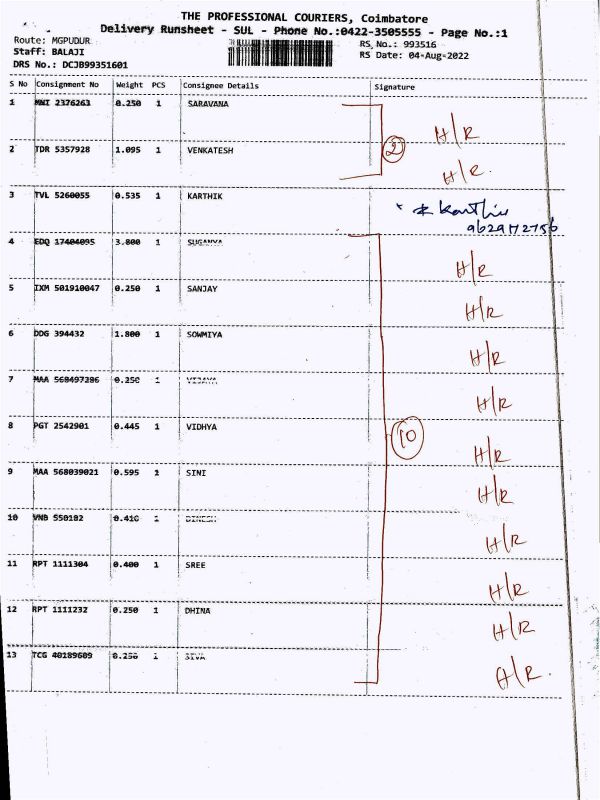 THE PROFESSIONAL COURIERS, Coimbatore
Delivery Runsheet - SUL - Phone No.:0422-3505555 - Page No.:1
Route: MGPUDUR
RS No.: 993516
Staff: BALAJI
RS Date: 04-Aug-2022
DRS No.: DCJB99351601
S No Consignment No Weight PCS Consignee Details Signature
1 MNI 2376263 0.250 1 SARAVANA H/R
2
2 TDR 5357928 1.095 1 VENKATESH H/R.
3 TVL 5260055 0.535 1 KARTHIK Karthik
4 EDQ 17404095 3.800 1 SUGANYA H/R
5 IXM 501910047 0.250 1 SANJAY H/R
6 DDG 394432 1.800 1 SOWMIYA H/R
7 MAA 568497286 0.250 1 VIJAYA H/R
8 PGT 2542901 0.445 1 VIDHYA H/R
10
9 MAA 568039021 0.595 1 SINI H/R
10 VNB 550182 0.410 1 DINESH H/R
11 RPT 1111304 0.400 1 SREE H/R
12 RPT 1111232 0.250 1 DHINA H/R
13 TCG 40189609 0.250 1 SIVA H/R.